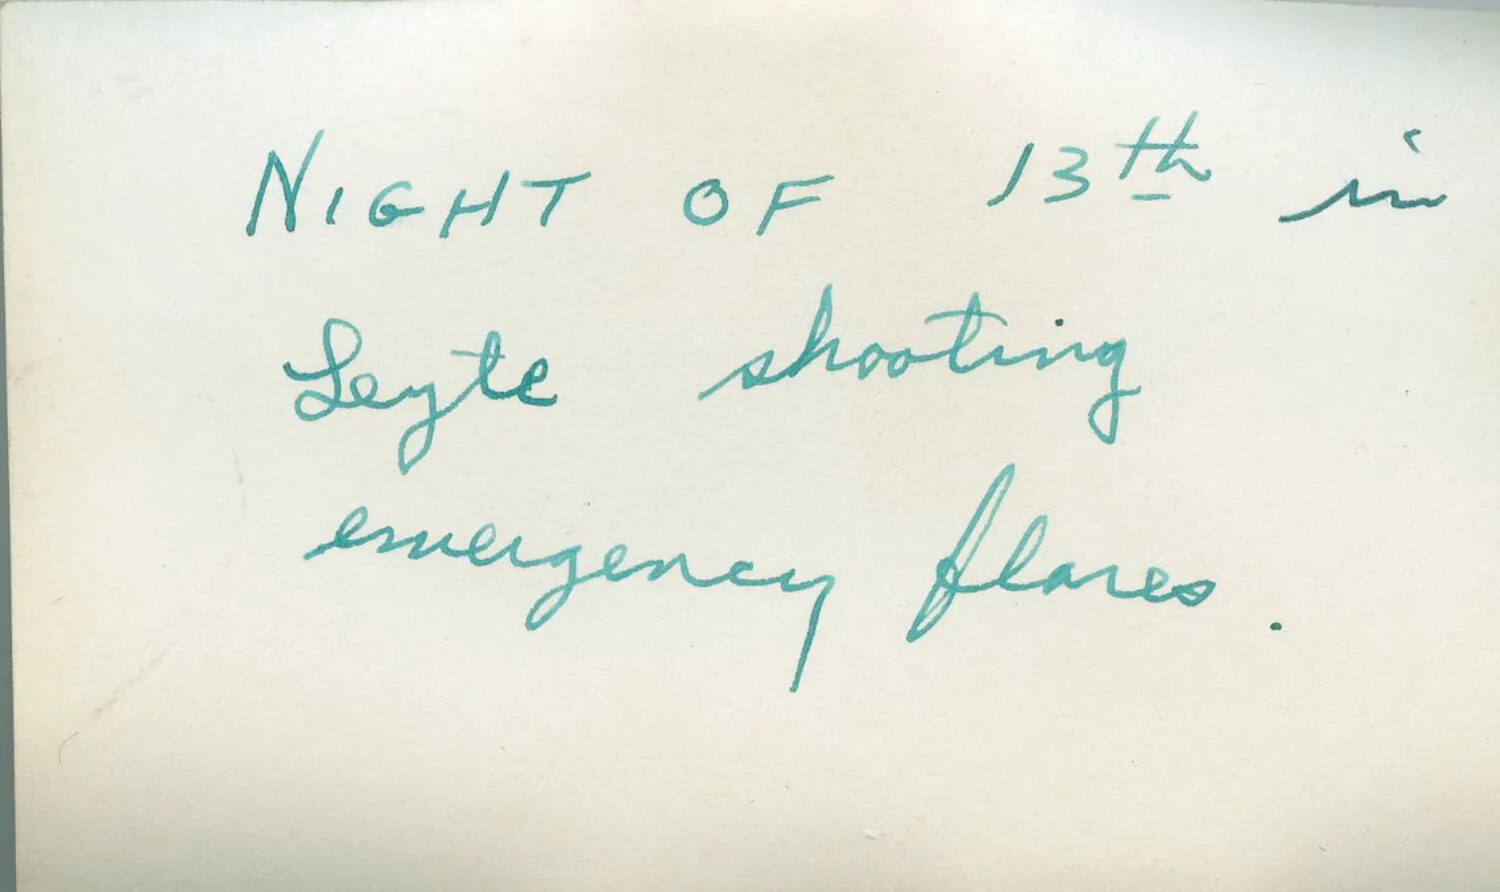 NIGHT OF 13th in
Leyte shooting
emergency flares.